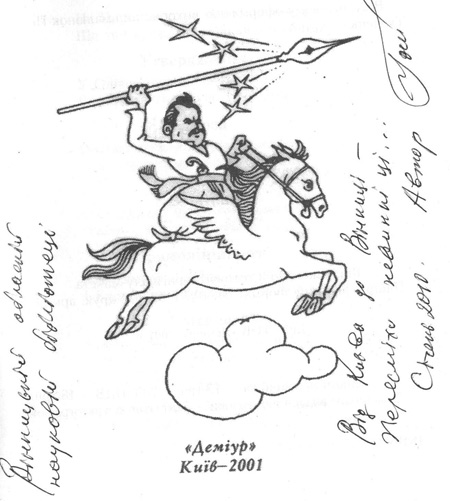 Вінницькій обласній
науковій бібліотеці
Від Києва до Вінниці –
Пересміхи невинні ці...
Січень 2010. Автор
«Деміур»
Київ–2001